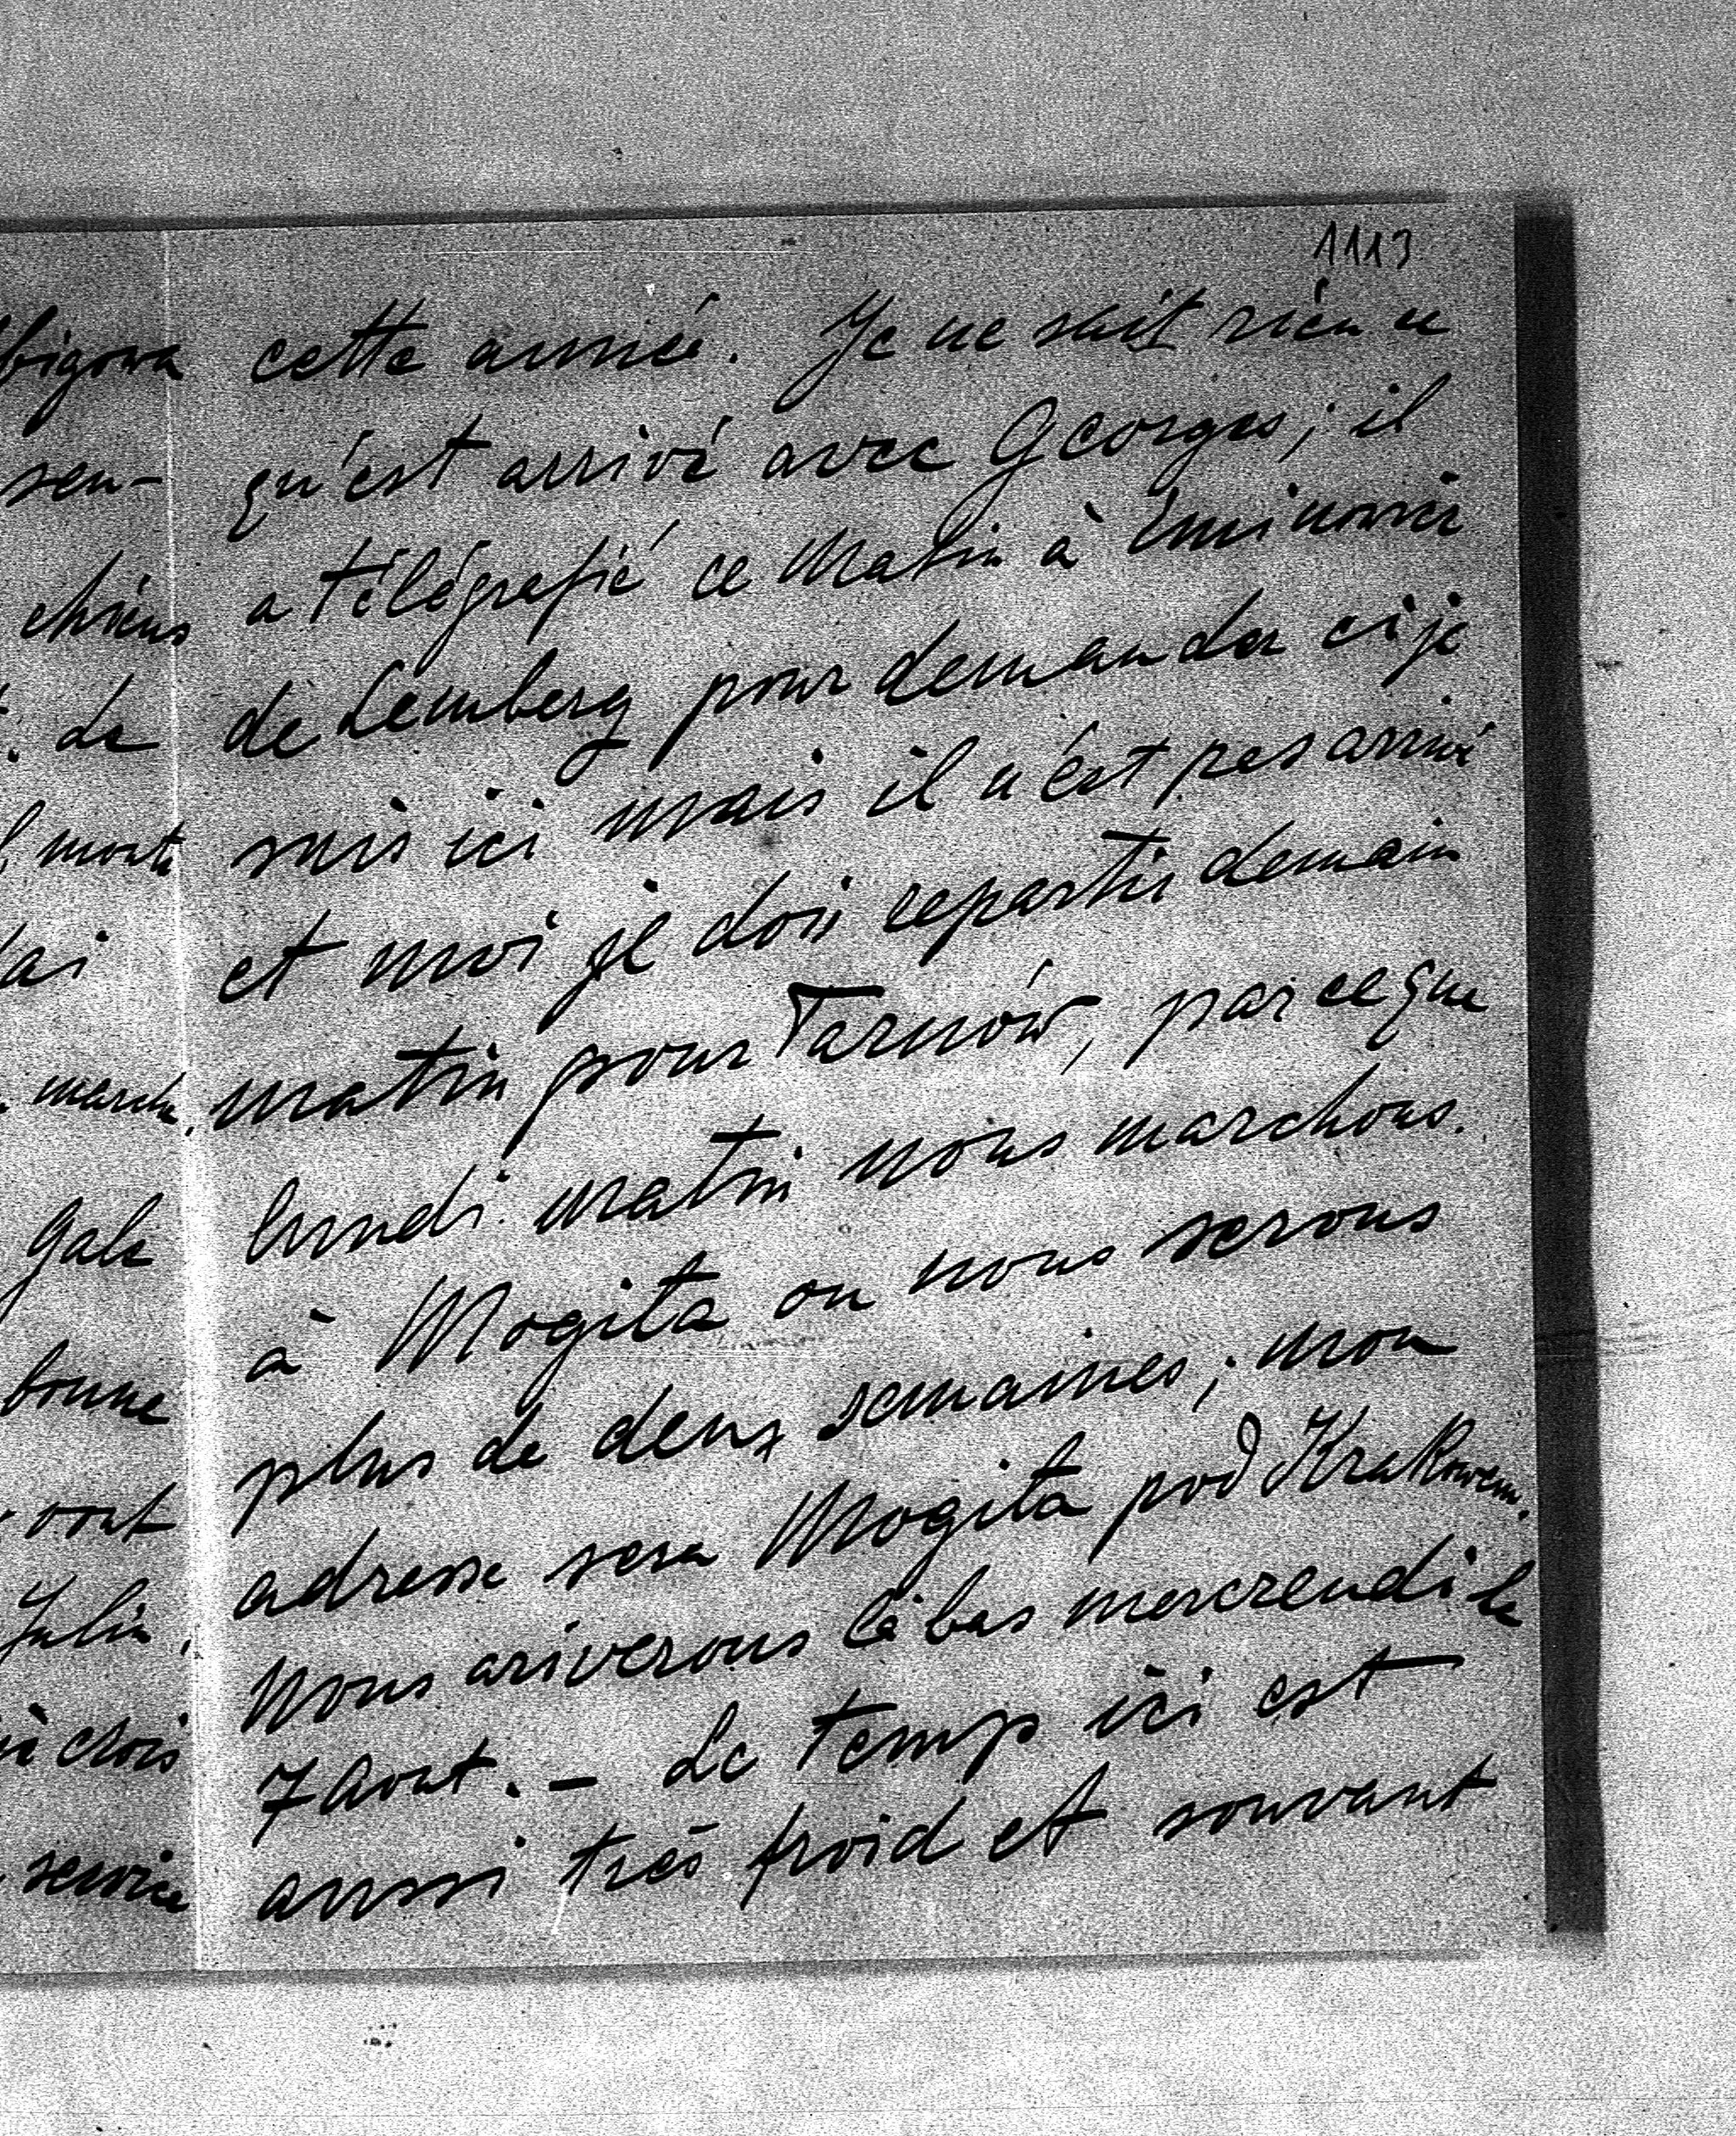 1113
bigowa
sen-
chiens
. Le
monte
ai
marche.
Gala
bonne
vont
Julia,
chois
service
cette année. Je ne sait rien ce
qu'est arrivé avec Georges; il
a télégrafié ce matin à Eminowicz
de Lemberg pour demander ci je
suis ici mais il n'ést pas arrivé
et moi je dois repartir demain
matin pour Tarnów, parceque
lundi matin nous marchons.
à Mogiła ou nous serons
plus de deux semaines; mon
adresse sera Mogiła pod Krakowem.
Nous ariverons là bas mercrendi le
7 Aout. - Le temp ici est
aussi très froid et souvant